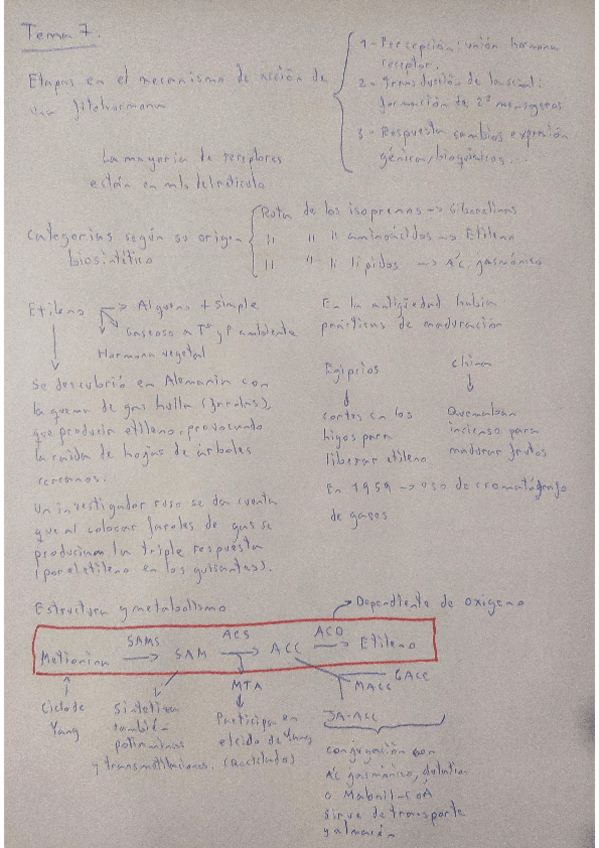 Tema 7.
Etapas en el mecanismo de acción de
una fitohormona
1- Percepción: unión hormona
receptor.
2- Transducción de la señal:
formación de 2º mensajeros
3- Respuesta cambios expresión
génica/bioquímicos...
La mayoría de receptores
están en mb del retículo
Categorías según su origen
biosintético
Ruta de los isoprenos → Giberelinas
" " " aminoácidos → Etileno
" " " lípidos → Ác. jasmónico
Etileno → Alqueno + simple
Gaseoso a Tª y P ambiente
Hormona vegetal
Se descubrió en Alemania con
la quema de gas hulla (farolas),
que producía etileno, provocando
la caída de hojas de árboles
cercanos.
Un investigador ruso se da cuenta
que al colocar faroles de gas se
producían la triple respuesta
(por el etileno en los guisantes).
En la antigüedad había
prácticas de maduración
Egipcios
cortes en los
higos para
liberar etileno
China
Quemaban
incienso para
madurar frutos
En 1959 → uso de cromatógrafo
de gases
Estructura y metabolismo
Dependiente de oxígeno
Metionina SAMS → SAM ACS → ACC ACO → Etileno
Ciclo de
Yang
Sintetiza
también
poliaminas
y transmetilaciones.
MTA
Participa en
el ciclo de Yang
(reciclado)
GACC
MACC
JA-ACC
conjugación con
Ác jasmónico,
o Malonil-CoA
sirve de transporte
y almacén